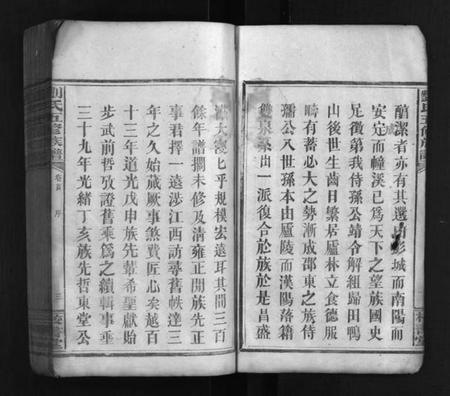 醕潔者亦有其選
城而南陽而
安定而幢溪已爲天下之望族國史
足徵第我侍孫公靖令解組歸田鴨
山後世生齒日繁居廬林立食德服
疇有蓄必大之勢漸成邵東之族侍
孺公入世孫本由廬陵而漢陽落籍
雙泉
出一派復合於族於是昌盛
大
七乎規模宏遠耳其間三百
餘年譜擱未修及清雍正開族先正
事君擇一遠涉江西訪尋舊帙達三
十三年道光戊申族先輩希聖獻貽
年之久始蕆厥事煞費匠心矣越百
步武前哲攷證舊乘爲之續輯事季
三十九年光緒丁亥族先哲東堂公
劉氏五修族譜
卷首
序
三